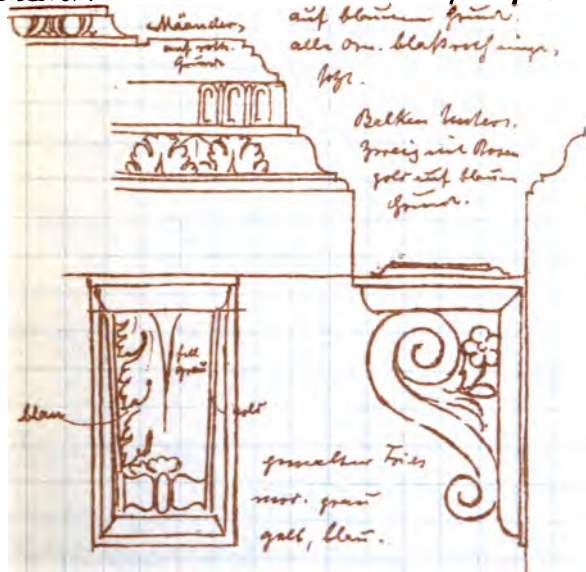 Mäander,
auf roth.
Grund
auf blauem Grund.
alle Orn. blaßroth
Balken Unters.
Zweig mit Rosen
gold auf blauem
Grund.
hell
grau
blau
gold
gemalter Fries
mor. grau
gelb, blau.